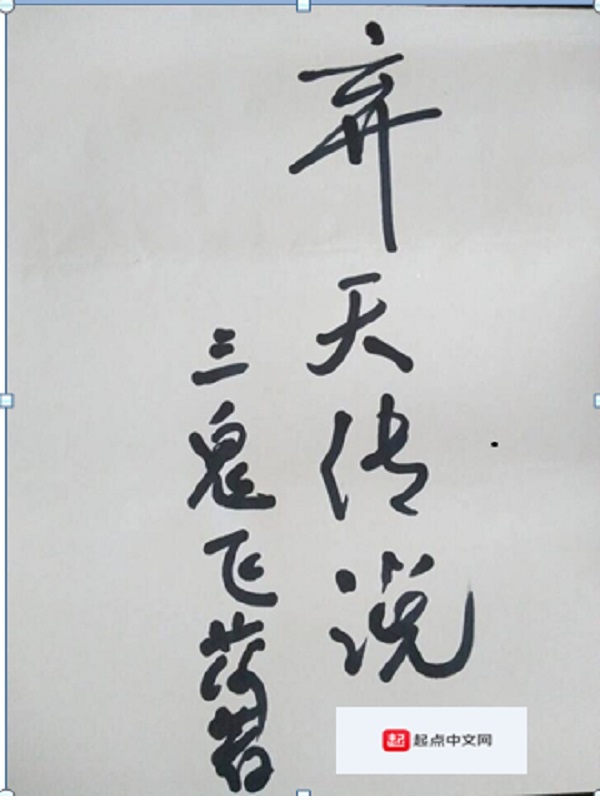 弃天传说
三鬼飞
起点中文网